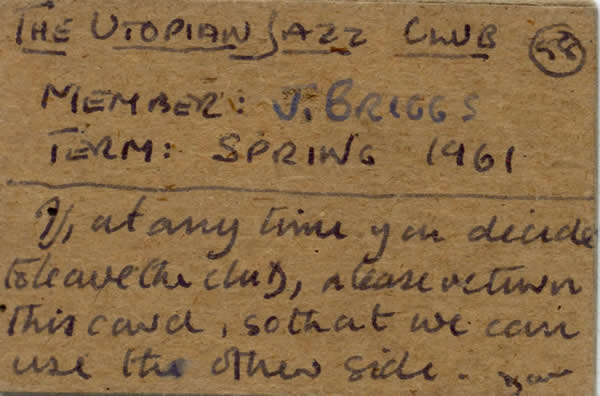 THE UTOPIAN JAZZ CLUB
MEMBER: J. BRIGGS
TERM: SPRING 1961
If, at any time you decide
to leave the club, please return
this card, so that we can
use the other side.